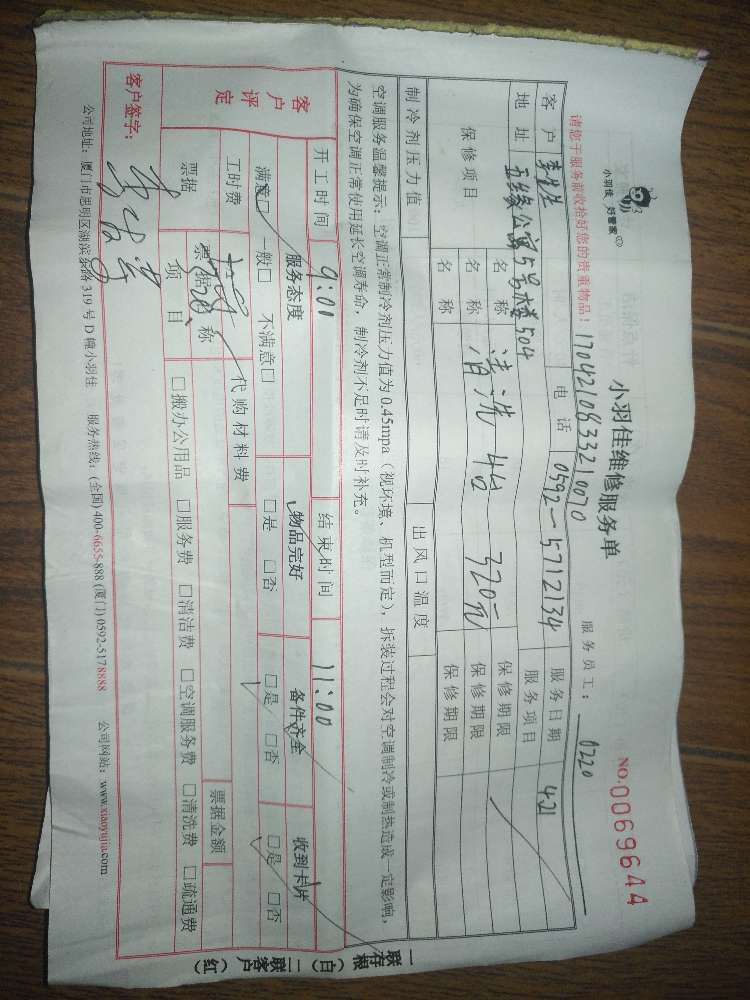 小羽佳 好管家
小羽佳维修服务单
NO.0069644
1704210833210070
服务员工： 0220
请您于服务前收拾好您的贵重物品！
客户 李先生 电话 0592-5712134 服务日期 4.21
地址 五缘公寓5号楼504 服务项目
保修项目 名称 清洗4台 320元 保修期限
名称 保修期限
名称 保修期限
制冷剂压力值 出风口温度
空调服务温馨提示：空调正常制冷剂压力值为0.45mpa（视环境、机型而定），拆装过程会对空调制冷或制热造成一定影响，
为确保空调正常使用延长空调寿命，制冷剂不足时请及时补充。
开工时间 9:00 结束时间 11:00
客户评定 服务态度 物品完好 备件齐全 收到卡片
满意□ 一般□ 不满意□ □是 □否 □是 □否 □是 □否
工时费 代购材料费 票据金额
票据 票据名称
项目 □搬办公用品 □服务费 □清洁费 □空调服务费 □清洗费 □疏通费
客户签字：
公司地址：厦门市思明区湖滨东路319号D幢小羽佳 服务热线：(全国) 400-6655-888 (厦门) 0592-5178888 公司网站：www.xiaoyujia.com
一联存根（白） 二联客户（红）